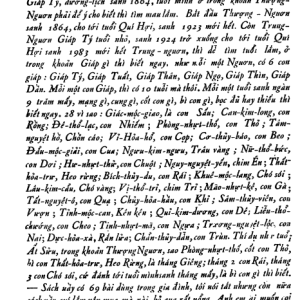 Giáp Tý, dương-lịch sanh 1864, tuổi mình ở trong khoản Thượng-
Nguơn phải để ý cho biết thì tìm mau lắm. Bắt đầu Thượng - Nguơn
sanh 1864, cho tới tuổi Quí Hợi, sanh 1923 mới hết. Còn Trung-
Nguơn Giáp Tý tuổi nhỏ, sanh 1924 trở xuống cho tới tuổi Quí
Hợi sanh 1983 mới hết Trung - nguơn, thì dễ tìm tuổi lắm, ở
trong khoản Giáp gì thì biết ngay. như mỗi một Nguơn, có 6 con
giáp : Giáp Tý, Giáp Tuất, Giáp Thân, Giáp Ngọ, Giáp Thìn, Giáp
Dần. Mỗi một con Giáp, thì có 10 tuổi mà thôi. Mỗi một tuổi sanh ngày
9 trăm mấy, mạng gì, cung gì, cốt con gì, bì con gì, bọc đủ hay thiếu thì
biết ngay. 28 vì sao : Giác-mộc-giao, là con Sấu; Can-kim-long, con
Rồng; Đê-thổ-lạc, con Nhiếm ; Phòng-nhựt-thố, con Thỏ ; Tâm-
nguyệt-hồ, Chồn cáo; Vĩ-Hỏa-hổ, con Cọp; Cơ-thủy-báo, con Beo ;
Đẩu-mộc-giải, con Cua; Ngưu-kim-ngưu, Trâu vàng ; Nữ-thổ-bức,
con Dơi ; Hư-nhựt-thử, con Chuột ; Nguy-nguyệt-yến, chim Én; Thất-
hỏa-trư, Heo rừng; Bích-thủy-du, con Rái ; Khuê-mộc-lang, Chó sói ;
Lâu-kim-cẩu, Chó vàng; Vị-thổ-trĩ, chim Trĩ ; Mão-nhựt-kê, con Gà ;
Tất-nguyệt-ô, con Quạ ; Chủy-hỏa-hầu, con Khỉ ; Sâm-thủy-viên, con
Vượn ; Tỉnh-mộc-can, Kên kên ; Quỉ-kim-dương, con Dê ; Liễu-thổ-
chướng, con Cheo ; Tinh-nhựt-mã, con Ngựa ; Trương-nguyệt-lộc, con
Nai; Dực-hỏa-xà, Rắn lửa; Chẩn-thủy-dẫn, con Trùn. Thí dụ như tuổi
Ất Sửu, trong khoản Thượng Nguơn, sao Phòng-nhựt-thố, cốt con Thỏ,
bì con Thất-hỏa-trư, Heo Rừng, là tháng Giêng; tháng 2 con Rái, tháng
3 con Chó sói, cớ đánh tới tuổi mình sanh tháng mấy, là bì con gì thì biết.
— Sách nầy có 69 bài dùng trong gia đình, tôi nói tắt nhưng còn